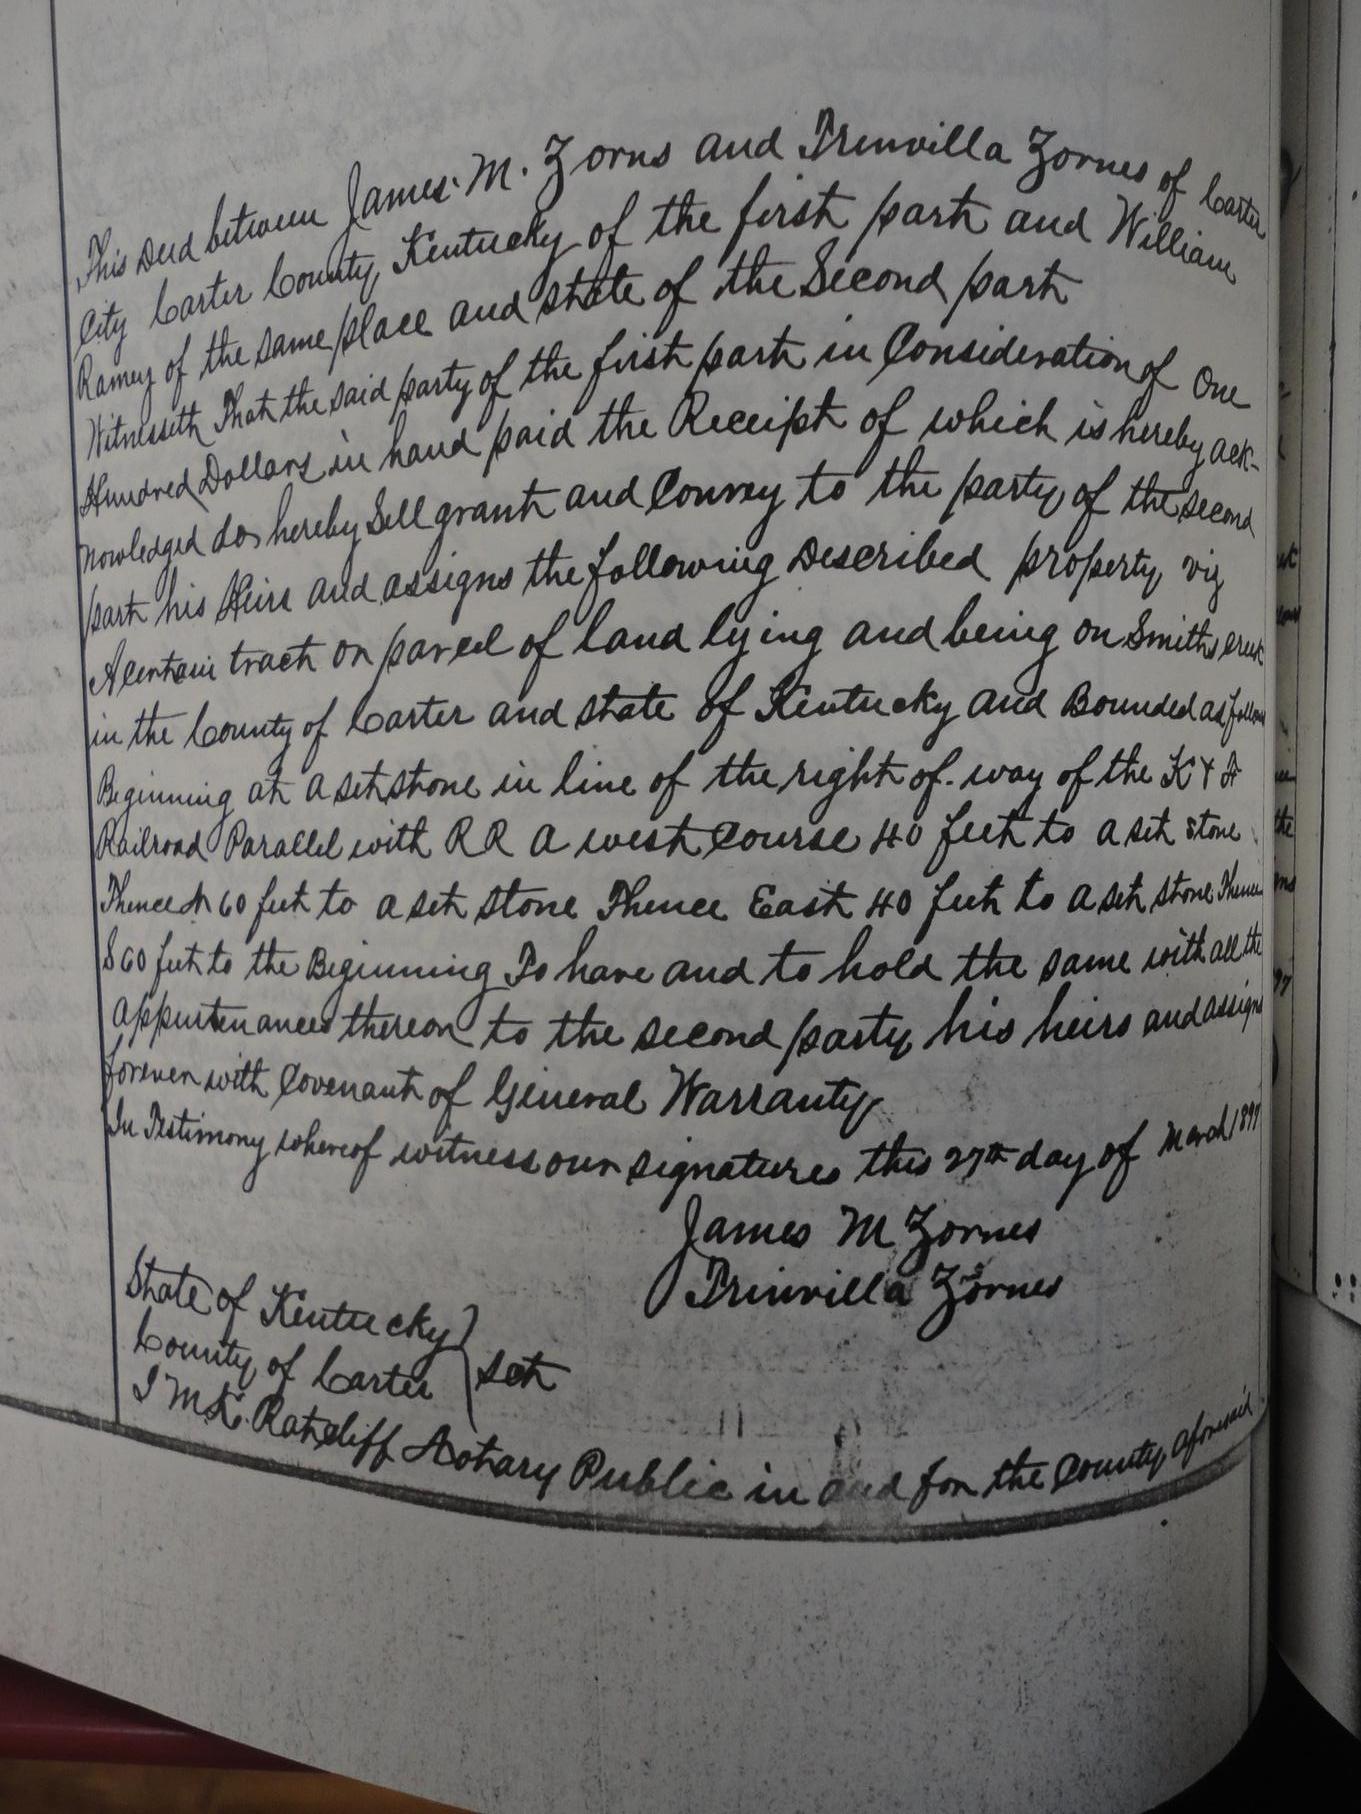 This Deed between James M. Zorns and Trinvilla Zornes of Carter
City Carter County, Kentucky of the first part and William
Ramey of the same place and state of the Second part
Witnesseth That the said party of the first part in Consideration of One
Hundred Dollars in hand paid the Receipt of which is hereby ack-
nowledged do hereby Sell grant and Convey to the party of the second
part his Heirs and assigns the following Described property, viz
A certain tract or parcel of land lying and being on Smiths creek
in the County of Carter and state of Kentucky and Bounded as follows
Beginning at a set stone in line of the right of-way of the K & 
Railroad Parallel with RR a west Course 40 feet to a set stone
Thence N 60 feet to a set stone Thence East 40 feet to a set stone Thence
S 60 feet to the Beginning To have and to hold the same with all the
appurtenances thereon to the second party, his heirs and assigns
forever with Covenant of General Warranty
In Testimony whereof witness our signatures this 27th day of March 1897
James M Zornes
Trinvilla Zornes
State of Kentucky
County of Carter } Sct
I M K. Ratcliff Notary Public in and for the County aforesaid